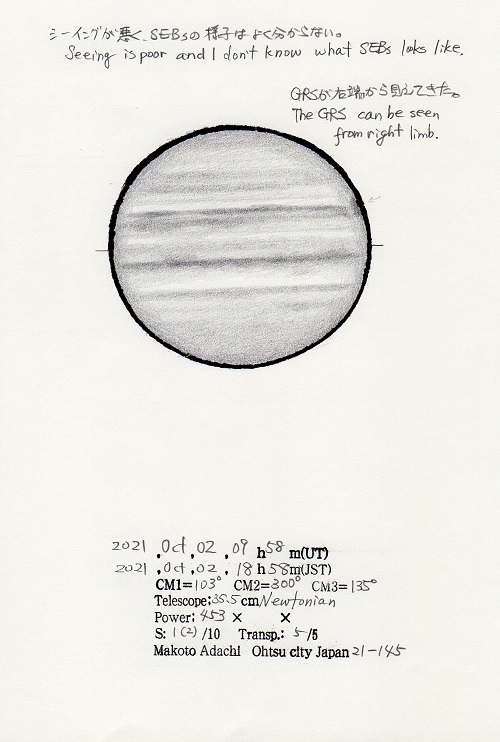 シーイングが悪く、SEBsの様子はよく分からない。
Seeing is poor and I don't know what SEBs looks like.
GRSが右端から見えてきた。
The GRS can be seen
from right limb.
2021 . Oct . 02 . 09 h 58 m(UT)
2021 . Oct . 02 . 18 h 58 m(JST)
CM1= 103° CM2= 300° CM3= 135°
Telescope: 35.5 cm Newtonian
Power: 453 × ×
S: 1(2) /10 Transp.: 5 /5
Makoto Adachi Ohtsu city Japan 21-145